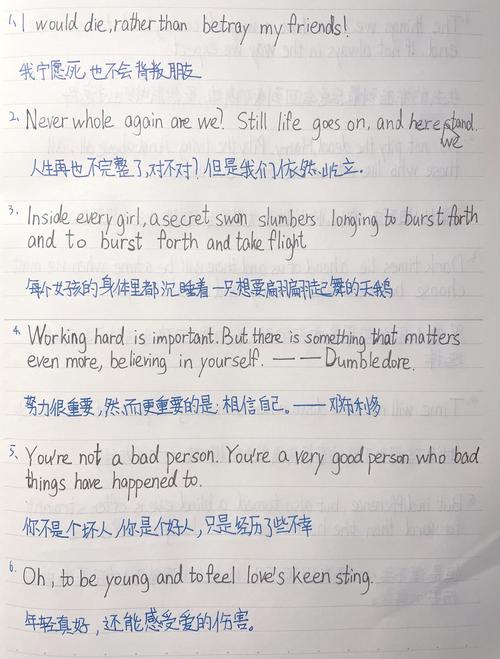 1. I would die, rather than betray my friends!
我宁愿死也不会背叛朋友
2. Never whole again are we? Still life goes on, and here stand.
we
人生再也不完整了,对不对?但是我们依然屹立.
3. Inside every girl, a secret swan slumbers longing to burst forth
and to burst forth and take flight
每个女孩的身体里都沉睡着一只想要翩翩起舞的天鹅
4. Working hard is important. But there is something that matters
even more, believing in yourself. —— Dumbledore.
努力很重要,然而更重要的是:相信自己。——邓布利多
5. You're not a bad person. You're a very good person who bad
things have happened to.
你不是个坏人,你是个好人,只是经历了些不幸
6. Oh, to be young and to feel love's keen sting.
年轻真好,还能感受爱的伤害。